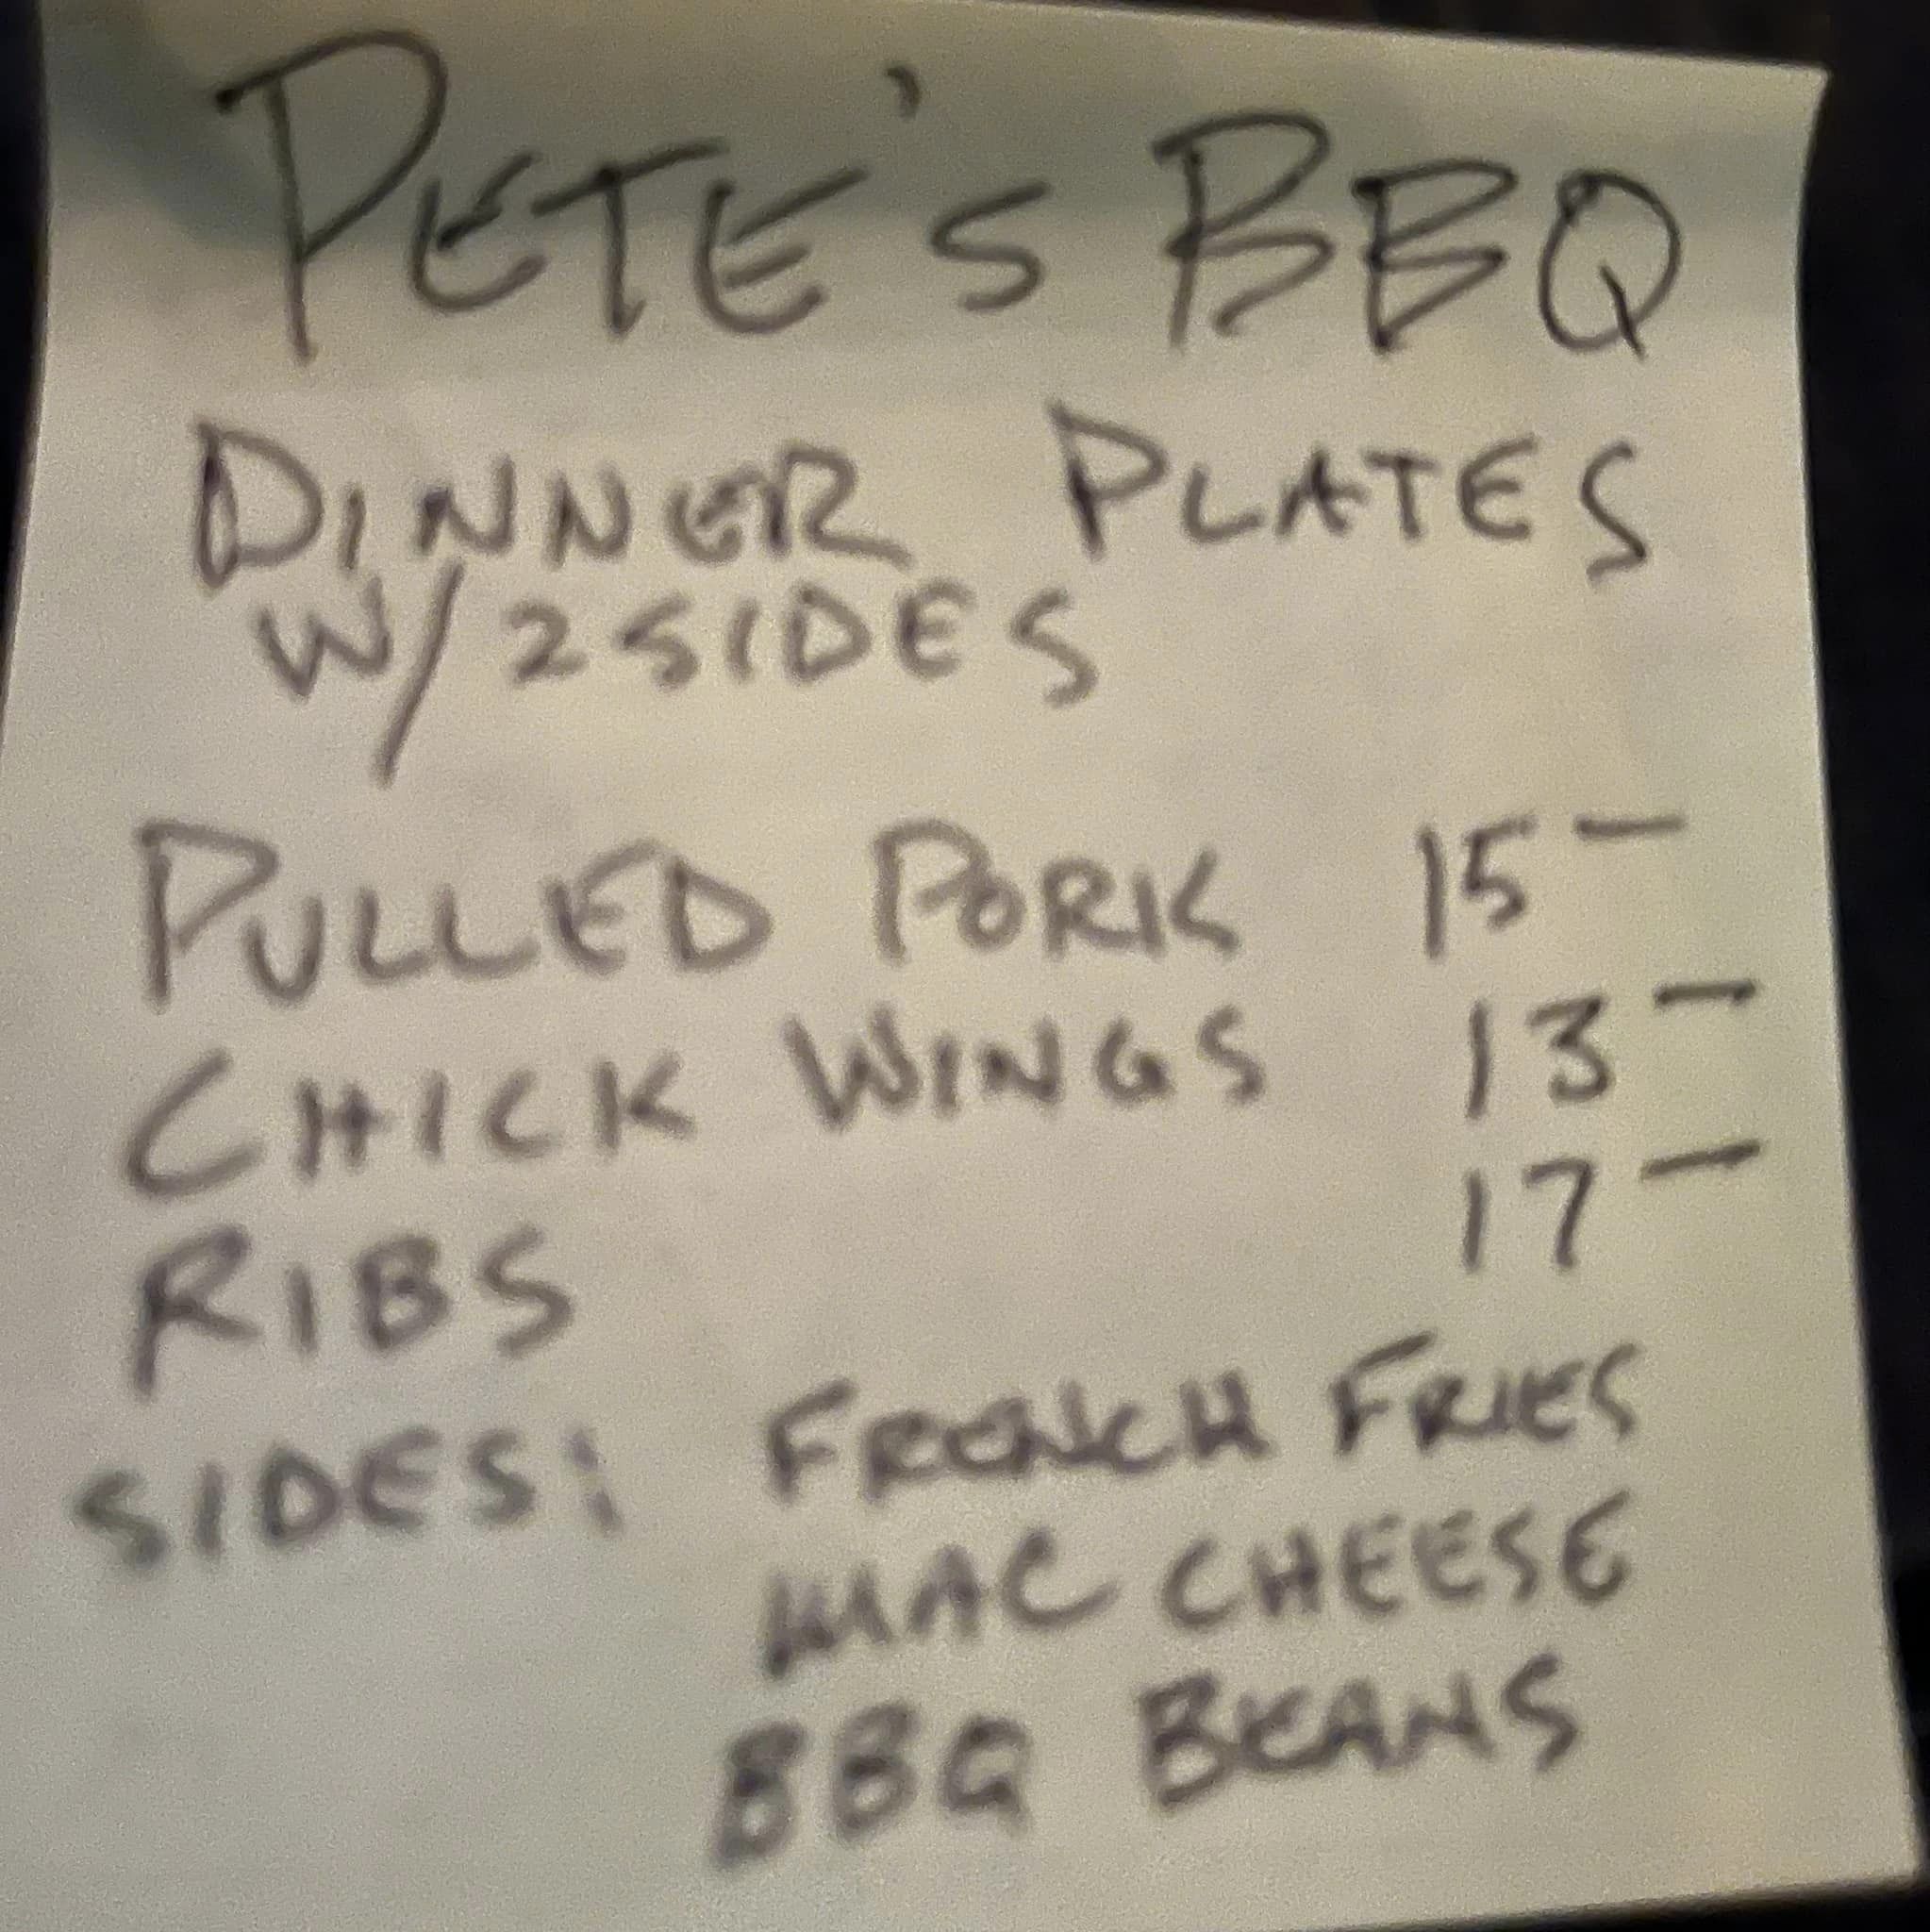 PETE'S BBQ
DINNER PLATES
W/ 2 SIDES
PULLED PORK 15—
CHICK WINGS 13—
RIBS 17—
SIDES: FRENCH FRIES
MAC CHEESE
BBQ BEANS